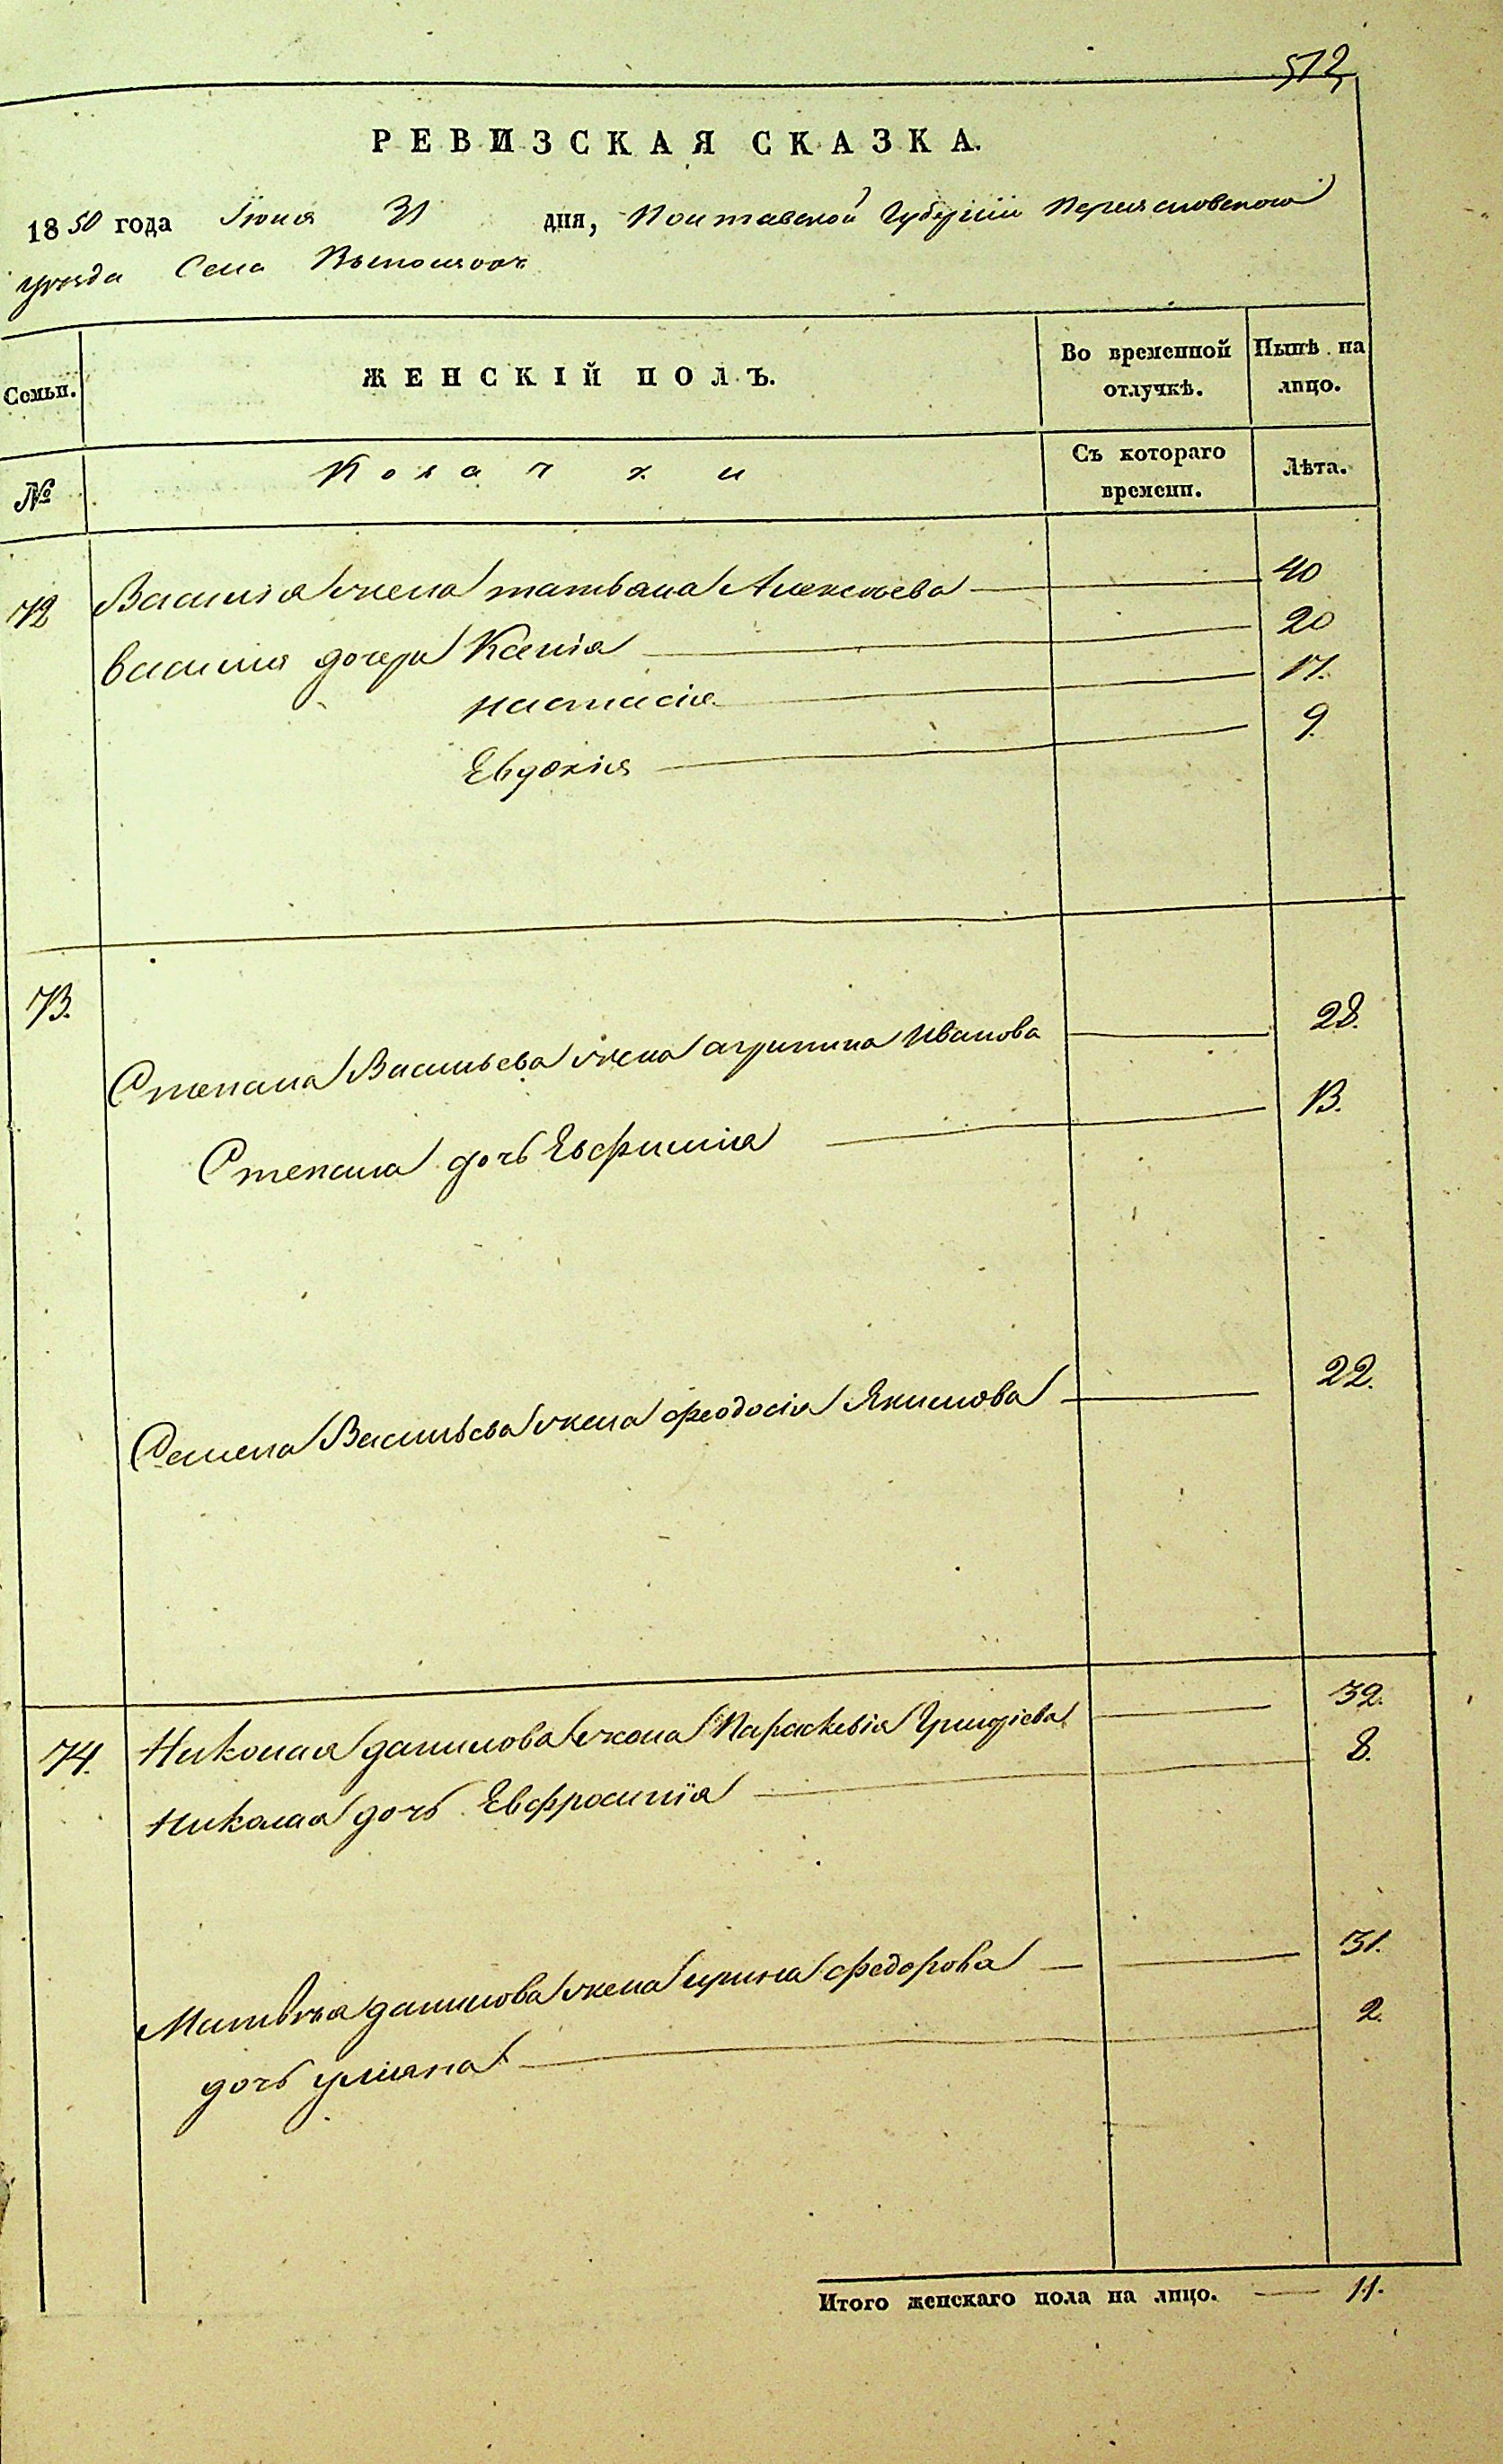 512
РЕВИЗСКАЯ СКАЗКА.
1850 года Июня 31 дня, Полтавской Губерніи Переясловского
уезда Села
Семьи. ЖЕНСКІЙ ПОЛЪ. Во временной отлучкѣ. Нынѣ на лицо.
№ Козачки Съ котораго времени. Лѣта.
72 Василия жена татьяна Алексеева 40
василия дочери Ксенія 20
настасія 17.
Евдокія 9.
73.
Степана Васильева жена агрипина Иванова 28.
Степана дочь Евфимія 13.
Семена Васильева жена феодосія Якимова 22.
74. Николая данилова жена Параскевія Григорієва 32.
Николая дочь Евфросинія 8.
Матвѣя данилова жена ирина федорова 31.
дочь улияна 2.
Итого женскаго пола на лицо. 11.